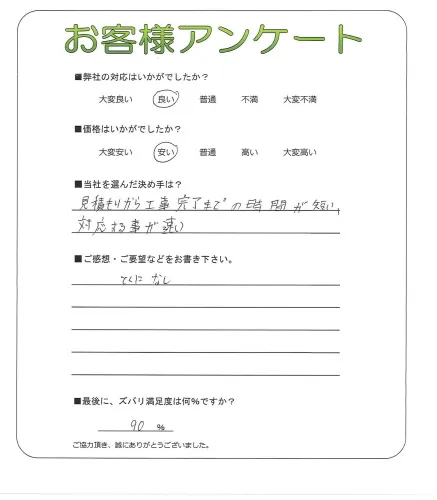 お客様アンケート
■弊社の対応はいかがでしたか？
大変良い 良い 普通 不満 大変不満
■価格はいかがでしたか？
大変安い 安い 普通 高い 大変高い
■当社を選んだ決め手は？
見積もりから工事完了までの時間が短い、
対応する事が速い
■ご感想・ご要望などをお書き下さい。
とくに なし
■最後に、ズバリ満足度は何%ですか？
90 %
ご協力頂き、誠にありがとうございました。